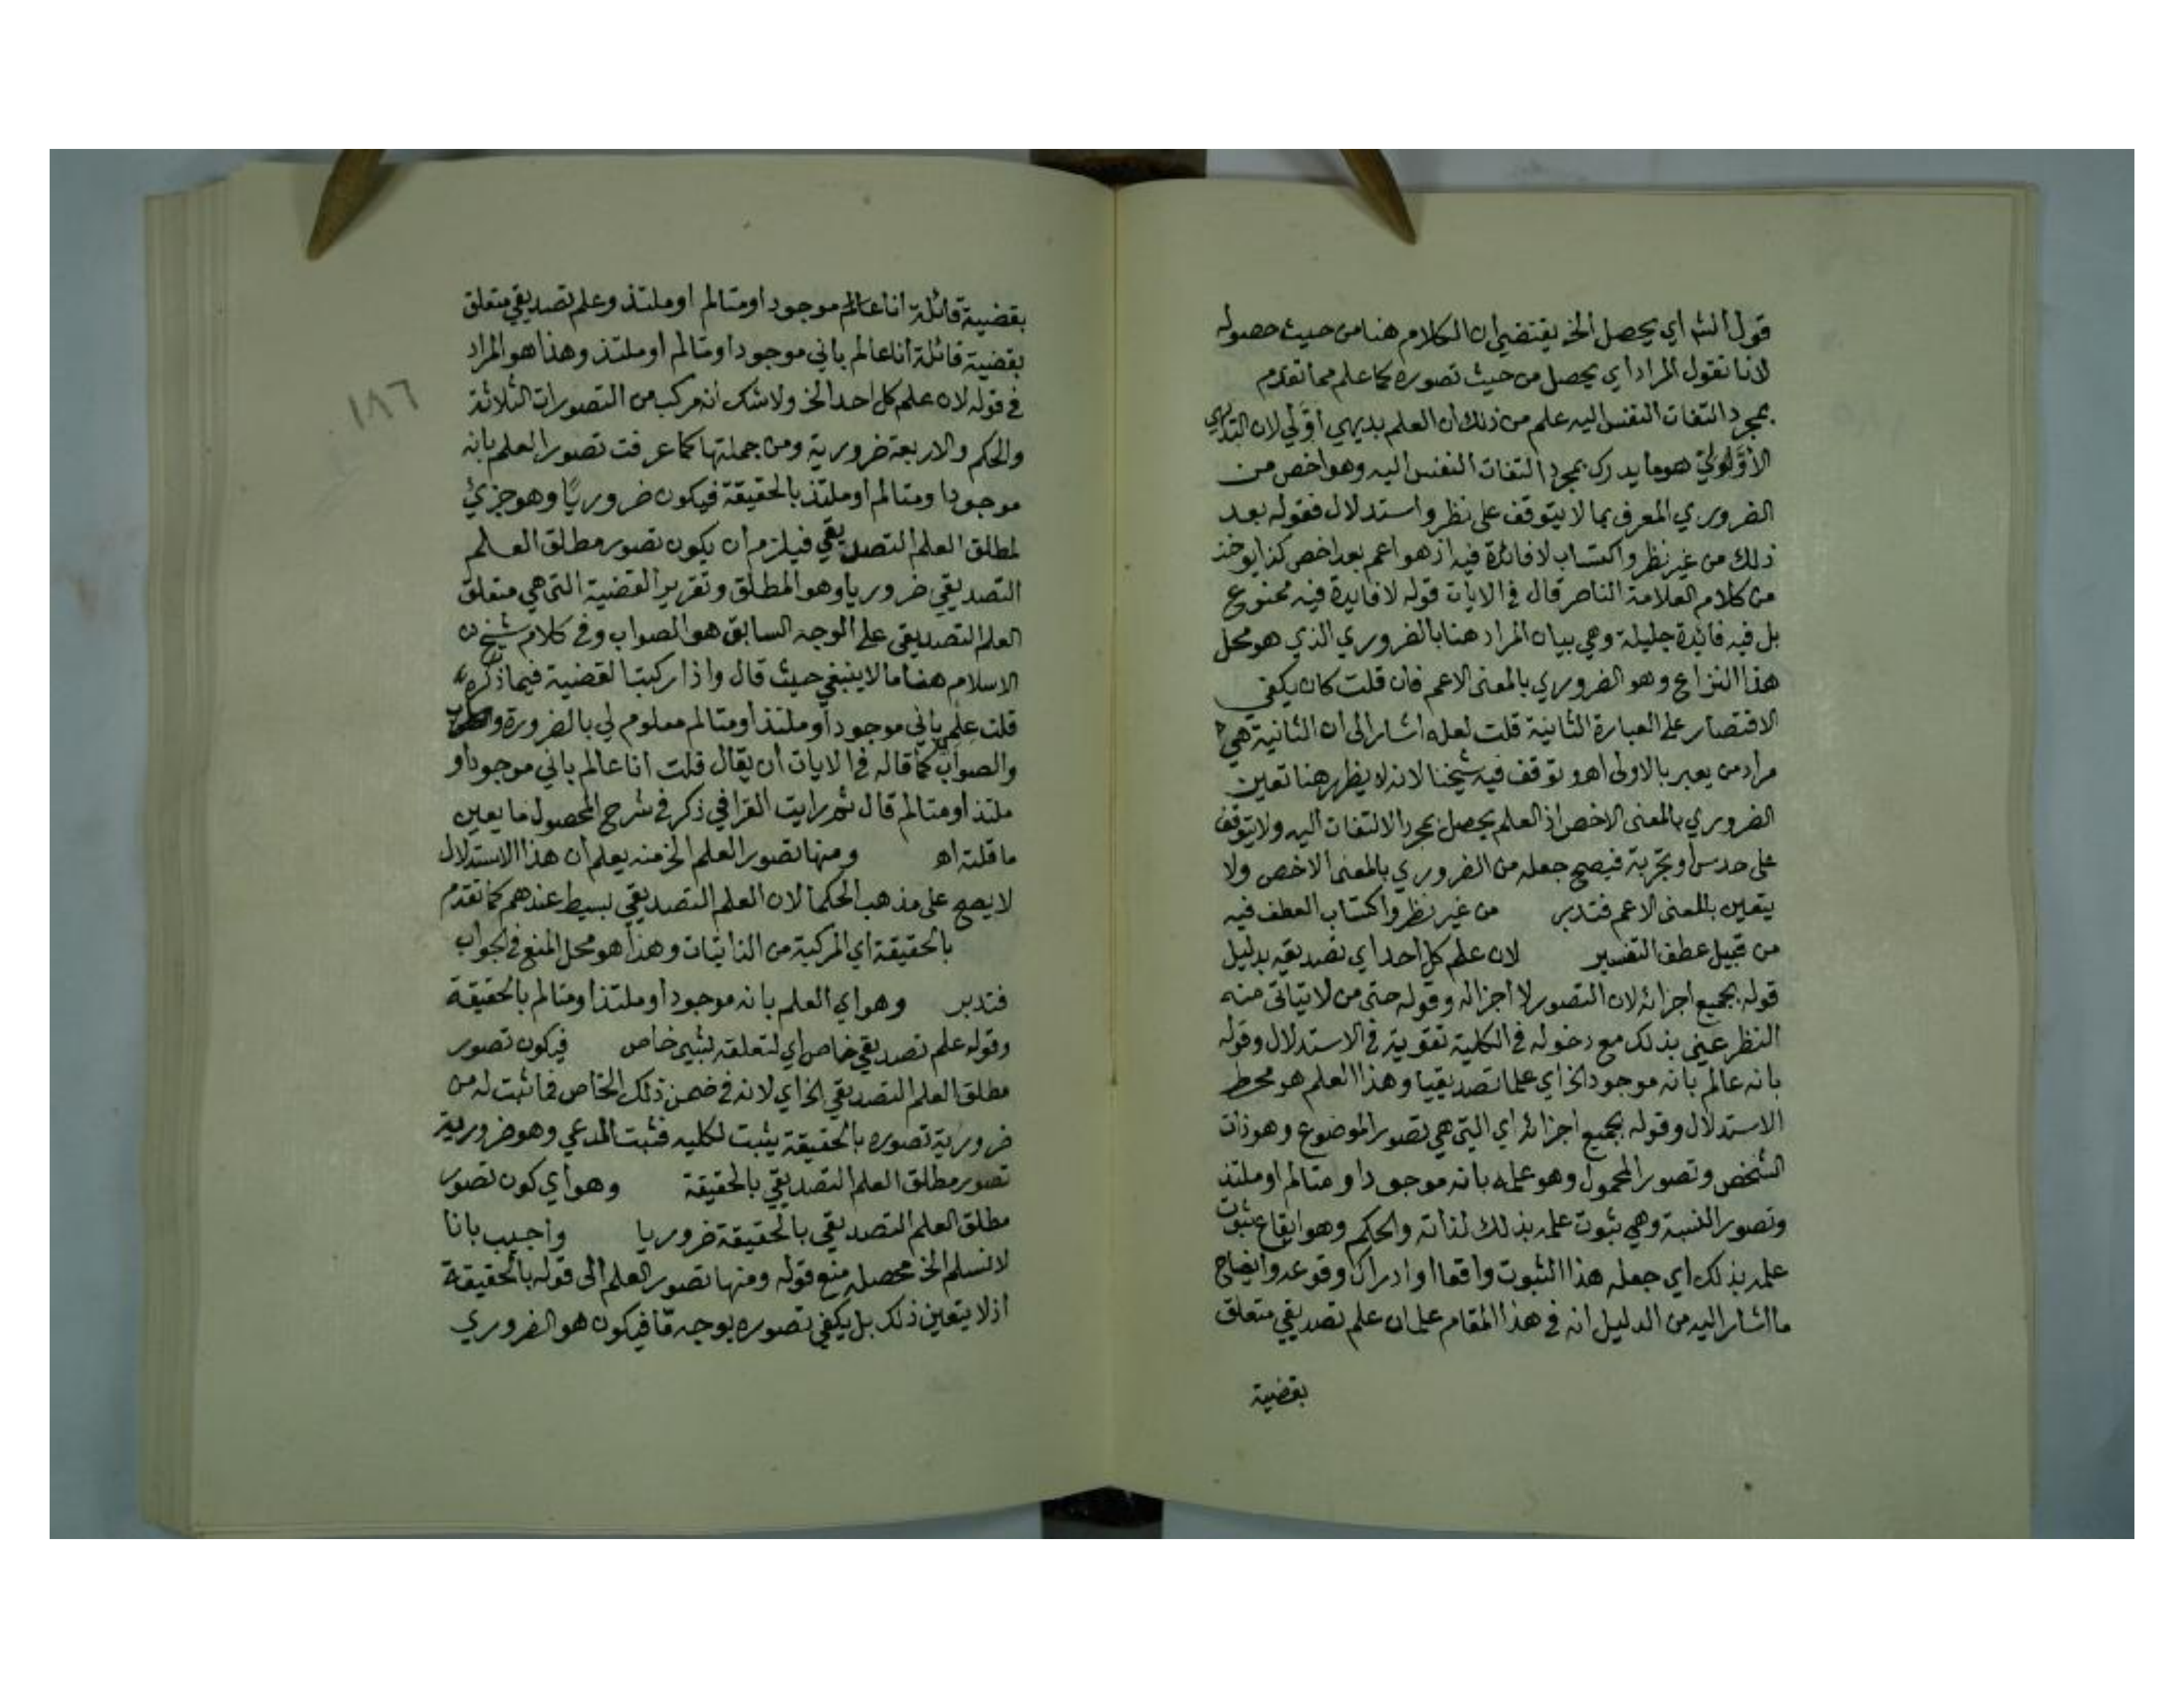 قول الشم اي يحصل الخ يقتضي ان الكلام هنا من حيث حصوله
لانا نقول المراد اي يحصل من حيث تصوره كما علم مما تقدم
بمجرد التفات النفس اليه علم من ذلك ان العلم بديهي أوّلي لان البديهي
الأوّلي هو ما يدرك بمجرد التفات النفس اليه وهو اخص من
الضروري المعرف بما لا يتوقف على نظر واستدلال فقوله بعد
ذلك من غير نظر واكتساب لا فائدة فيه اذ هو اعم بعد اخص كذا يوخذ
من كلام العلامة الناصر قال في الايات قوله لا فايدة فيه ممنوع
بل فيه فائدة جليلة وهي بيان المراد هنا بالضروري الذي هو محل
هذا النزاع وهو الضروري بالمعنى الاعم فان قلت كان يكفي
الاقتصار على العبارة الثانية قلت لعله اشار الى ان الثانية هي
مراد من يعبر بالاولى اهـ وتوقف فيه شيخنا لانه لا يظهر هنا تعين
الضروري بالمعنى الاخص اذ العلم يحصل بمجرد الالتفات اليه ولا يتوقف
على حدس او تجربة فيصح جعله من الضروري بالمعنى الاخص ولا
يتعين بالمعنى الاعم فتدبر من غير نظر واكتساب العطف فيه
من قبيل عطف التفسير لان علم كل احد اي تصديقه بدليل
قوله بجميع اجزائه لان التصور لا اجزا له وقوله حتى من لا يتاتى منه
النظر عيني بذلك مع دخوله في الكلية تقوية في الاستدلال وقوله
بانه عالم بانه موجود الخ اي علما تصديقيا وهذا العلم هو محط
الاستدلال وقوله بجميع اجزائه اي التي هي تصور الموضوع وهو ذات
الشخص وتصور المحمول وهو علمه بانه موجود او متالم او ملتذ
وتصور النسبة وهي ثبوت علمه بذلك لذاته والحكم وهو ايقاع ثبوت
علمه بذلك اي جعله هذا الثبوت واقعا او ادراك وقوعه وايضاح
ما اشار اليه من الدليل انه في هذا المقام علمان علم تصديقي متعلق
بقضية
بقضية قائلة انا عالم موجود او متالم او ملتذ وعلم تصديقي متعلق
بقضية قائلة انا عالم باني موجود او متالم او ملتذ وهذا هو المراد
في قوله لان علم كل احد الخ ولا شك انه مركب من التصورات الثلاثة
١٨٦
والحكم والاربعة ضرورية ومن جملتها كما عرفت تصور العلم بانه
موجود او متالم او ملتذ بالحقيقة فيكون ضروريًا وهو جزئي
لمطلق العلم التصديقي فيلزم ان يكون تصور مطلق العلم
التصديقي ضروريا وهو المطلق وتقرير القضية التي هي متعلق
العلم التصديقي على الوجه السابق هو الصواب وفي كلام شيخ
الاسلام هنا ما لا ينبغي حيث قال واذا ركبت القضية فيما ذكره
قلت علمي باني موجود او ملتذ او متالم معلوم لي بالضرورة
والصواب كما قاله في الايات ان يقال قلت انا عالم باني موجود او
ملتذ او متالم قال ثم رايت القرافي ذكر في شرح المحصول ما يعين
ما قلته اهـ ومنها تصور العلم الخ منه يعلم ان هذا الاستدلال
لا يصح على مذهب الحكما لان العلم التصديقي بسيط عندهم كما تقدم
بالحقيقة اي المركبة من الذاتيات وهذا هو محل المنع في الجواب
فتدبر وهو اي العلم بانه موجود او ملتذ او متالم بالحقيقة
وقوله علم تصديقي خاص اي لتعلقه بشيء خاص فيكون تصور
مطلق العلم التصديقي الخ اي لانه في ضمن ذلك الخاص فما ثبت له من
ضرورية تصوره بالحقيقة يثبت لكليه فثبت المدعي وهو ضرورية
تصور مطلق العلم التصديقي بالحقيقة وهو اي كون تصور
مطلق العلم التصديقي بالحقيقة ضروريا واجيب بانا
لا نسلم الخ محصله منع قوله ومنها تصور العلم الى قوله بالحقيقة
اذ لا يتعين ذلك بل يكفي تصوره بوجه مّا فيكون هو الضروري